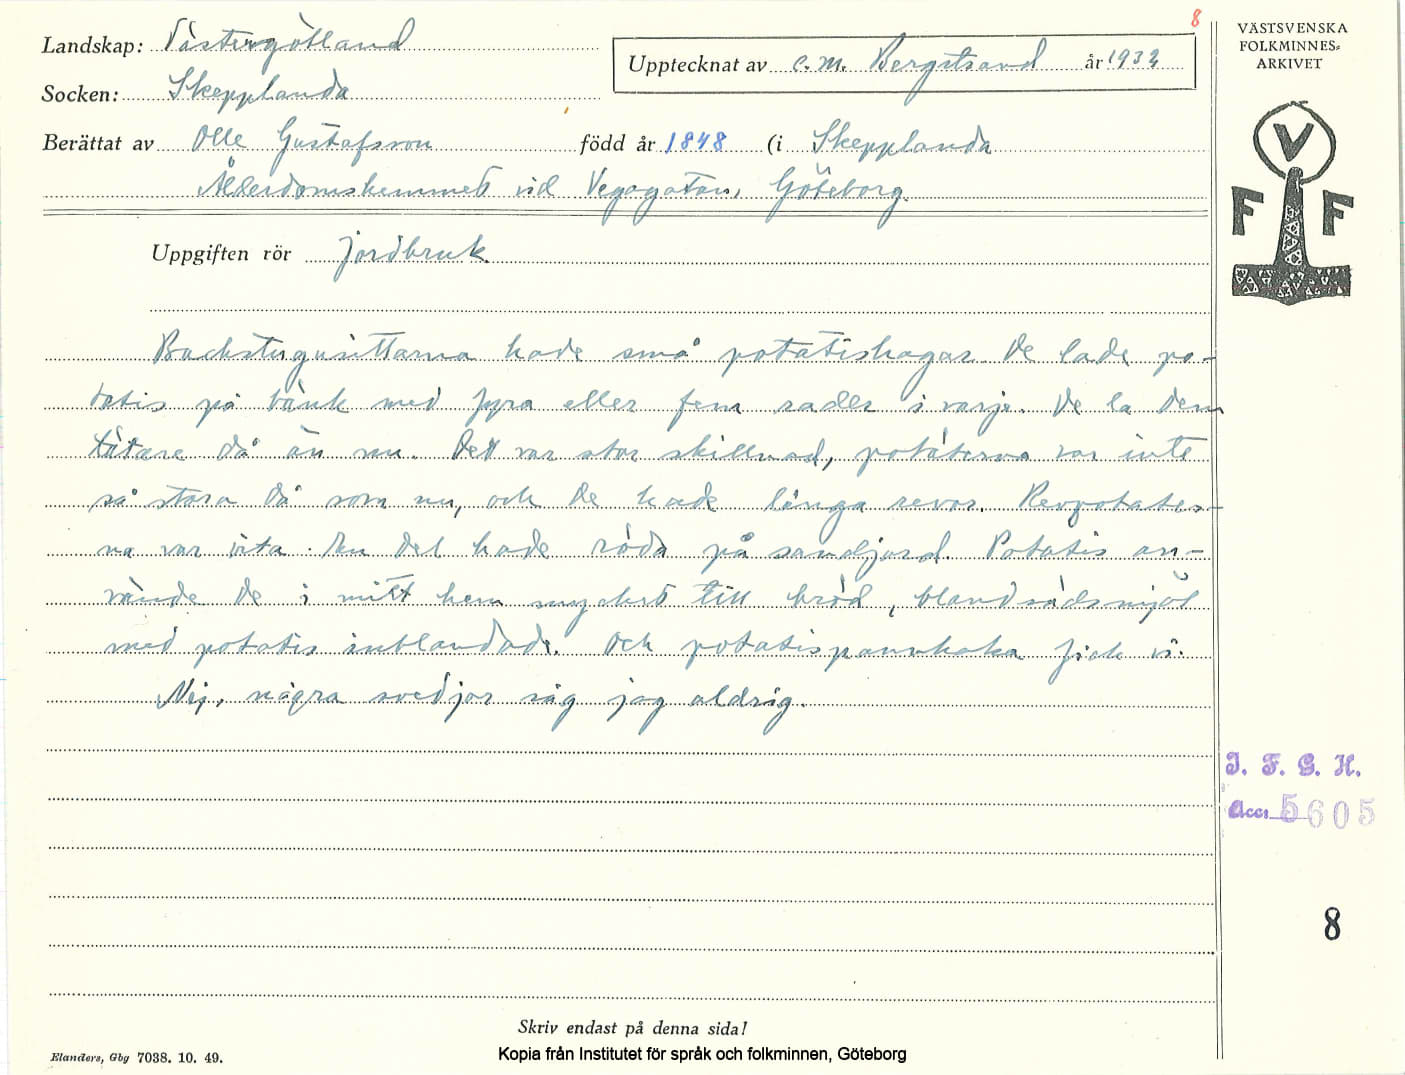 8
Landskap: Västergötland
VÄSTSVENSKA
FOLKMINNES=
ARKIVET
Upptecknat av C.M. Bergstrand år 1932
Socken: Skepplanda
Berättat av Olle Gustafsson född år 1848 (i Skepplanda
Ålderdomshemmet vid Vegagatan, Göteborg.
V
F F
Uppgiften rör jordbruk
Backstugusittarna hade små potatishagar. De lade po-
tatis på bänk med fyra eller fem rader i varje. De la dem
tätare då än nu. Det var stor skillnad, potäterna var inte
så stora då som nu, och de hade långa revor. Revpotates-
na var vita. En del hade röda på sandjord. Potatis an-
vände de i mitt hem mycket till bröd, blandsädsmjöl
med potatis inblandade. Och potatispannkaka fick vi.
Nej, några svedjor såg jag aldrig.
I. F. G. H.
Acc: 5605
8
Skriv endast på denna sida!
Elanders, Gbg 7038. 10. 49.
Kopia från Institutet för språk och folkminnen, Göteborg